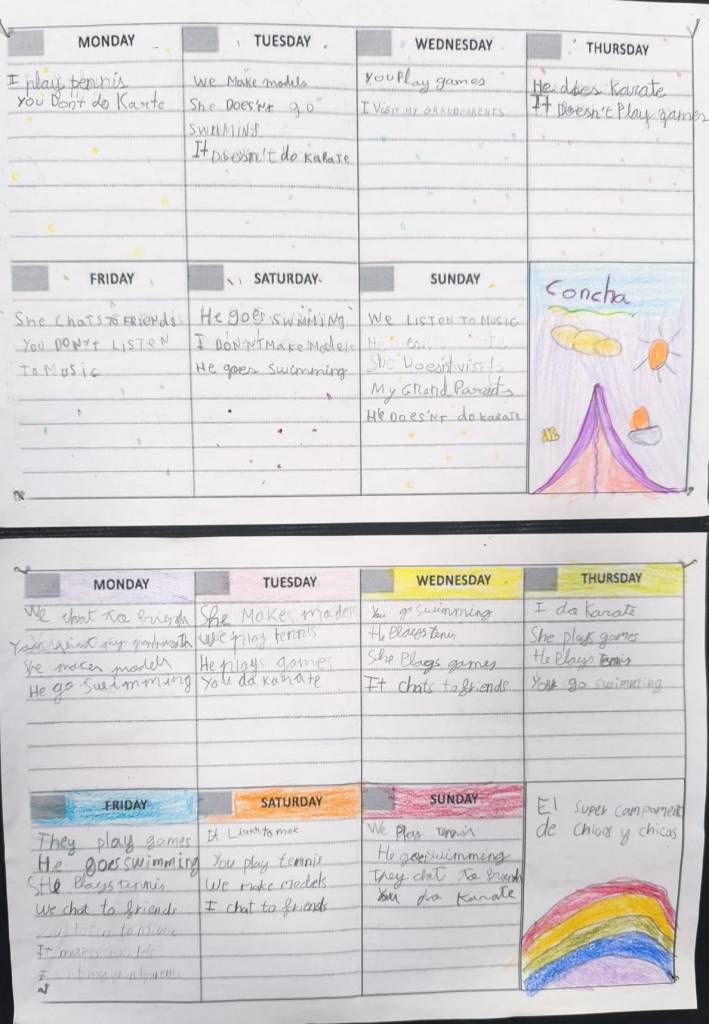 MONDAY
I play tennis
You Don't do Karate
TUESDAY
We Make models
She Does'nt go
swimming
It Doesn't do Karate
WEDNESDAY
You Play games
I Visit my GRANDPARENTS
THURSDAY
He does Karate
It Doesn't Play games
FRIDAY
She chats to FRiends
You DON'T LISTEN
To Music
SATURDAY
He goes swimming
I DON'NT Make Models
He goes swimming
SUNDAY
We LISTEN TO MUSIC
He
She Doesn't visit
My GRand Parents
He Does'nt do karate
Concha
MONDAY
We chat to friends
She makes models
He go swimming
TUESDAY
She Makes models
We play tennis
He plays games
You do Karate
WEDNESDAY
You go swimming
He Plays tenis
She Plays games
It chats to friends
THURSDAY
I do Karate
She plays games
He Plays Tennis
You go swimming
FRIDAY
They play games
He goes swimming
SHe Plays tennis
We chat to friends
listen to music
It makes models
I
SATURDAY
It Listen to
You play tennis
We make models
I chat to friends
SUNDAY
We Play Tennis
He goes swimming
They chat to friends
You do Karate
El super campament
de chicos y chicas